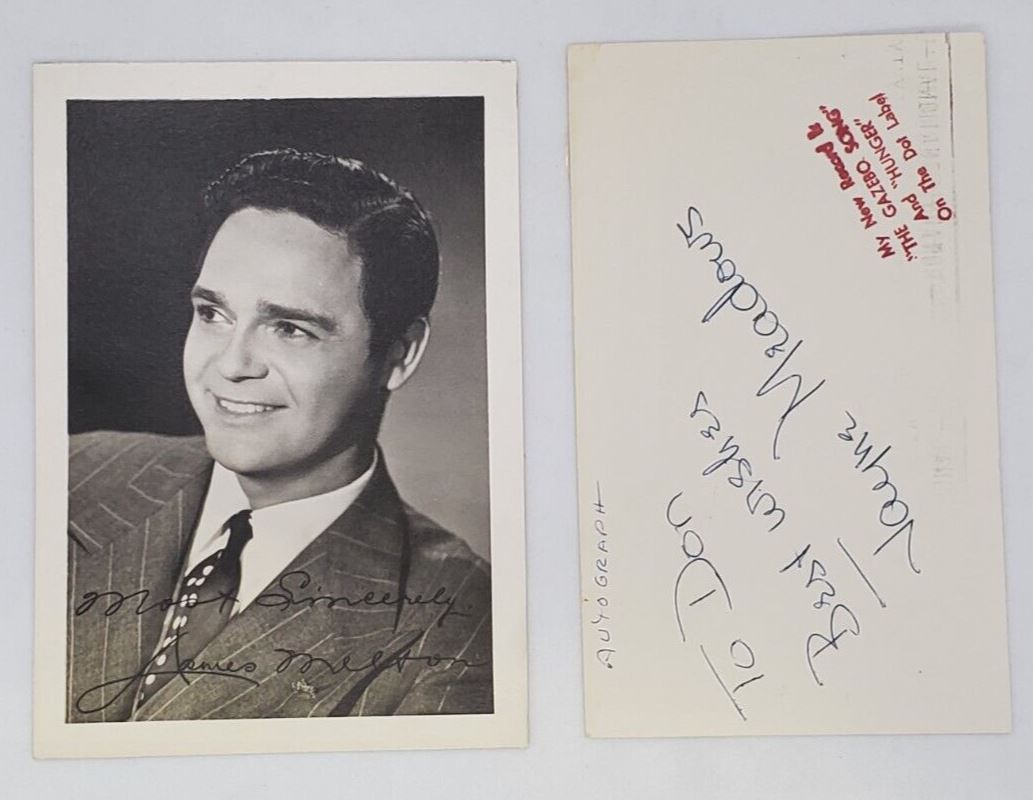 Most Sincerely.
James Melton
My New Record Is
"THE GAZEBO SONG"
And "HUNGER"
On The Dot Label
To Don
Best wishes
Jayne Meadows
AUTOGRAPH